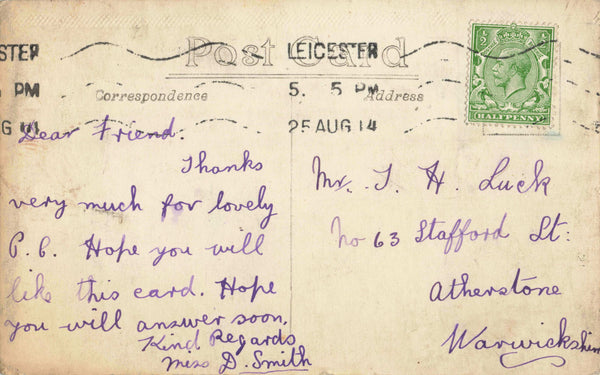 Post Card
Correspondence
Address
STER
PM
LEICESTER
5. 5 PM
25 AUG 14
HALFPENNY
Dear Friend.
Thanks
very much for lovely
P.C. Hope you will
like this card. Hope
you will answer soon.
Kind Regards
Miss D. Smith
Mr. J. H. Luck
No 63 Stafford St:
Atherstone
Warwickshire